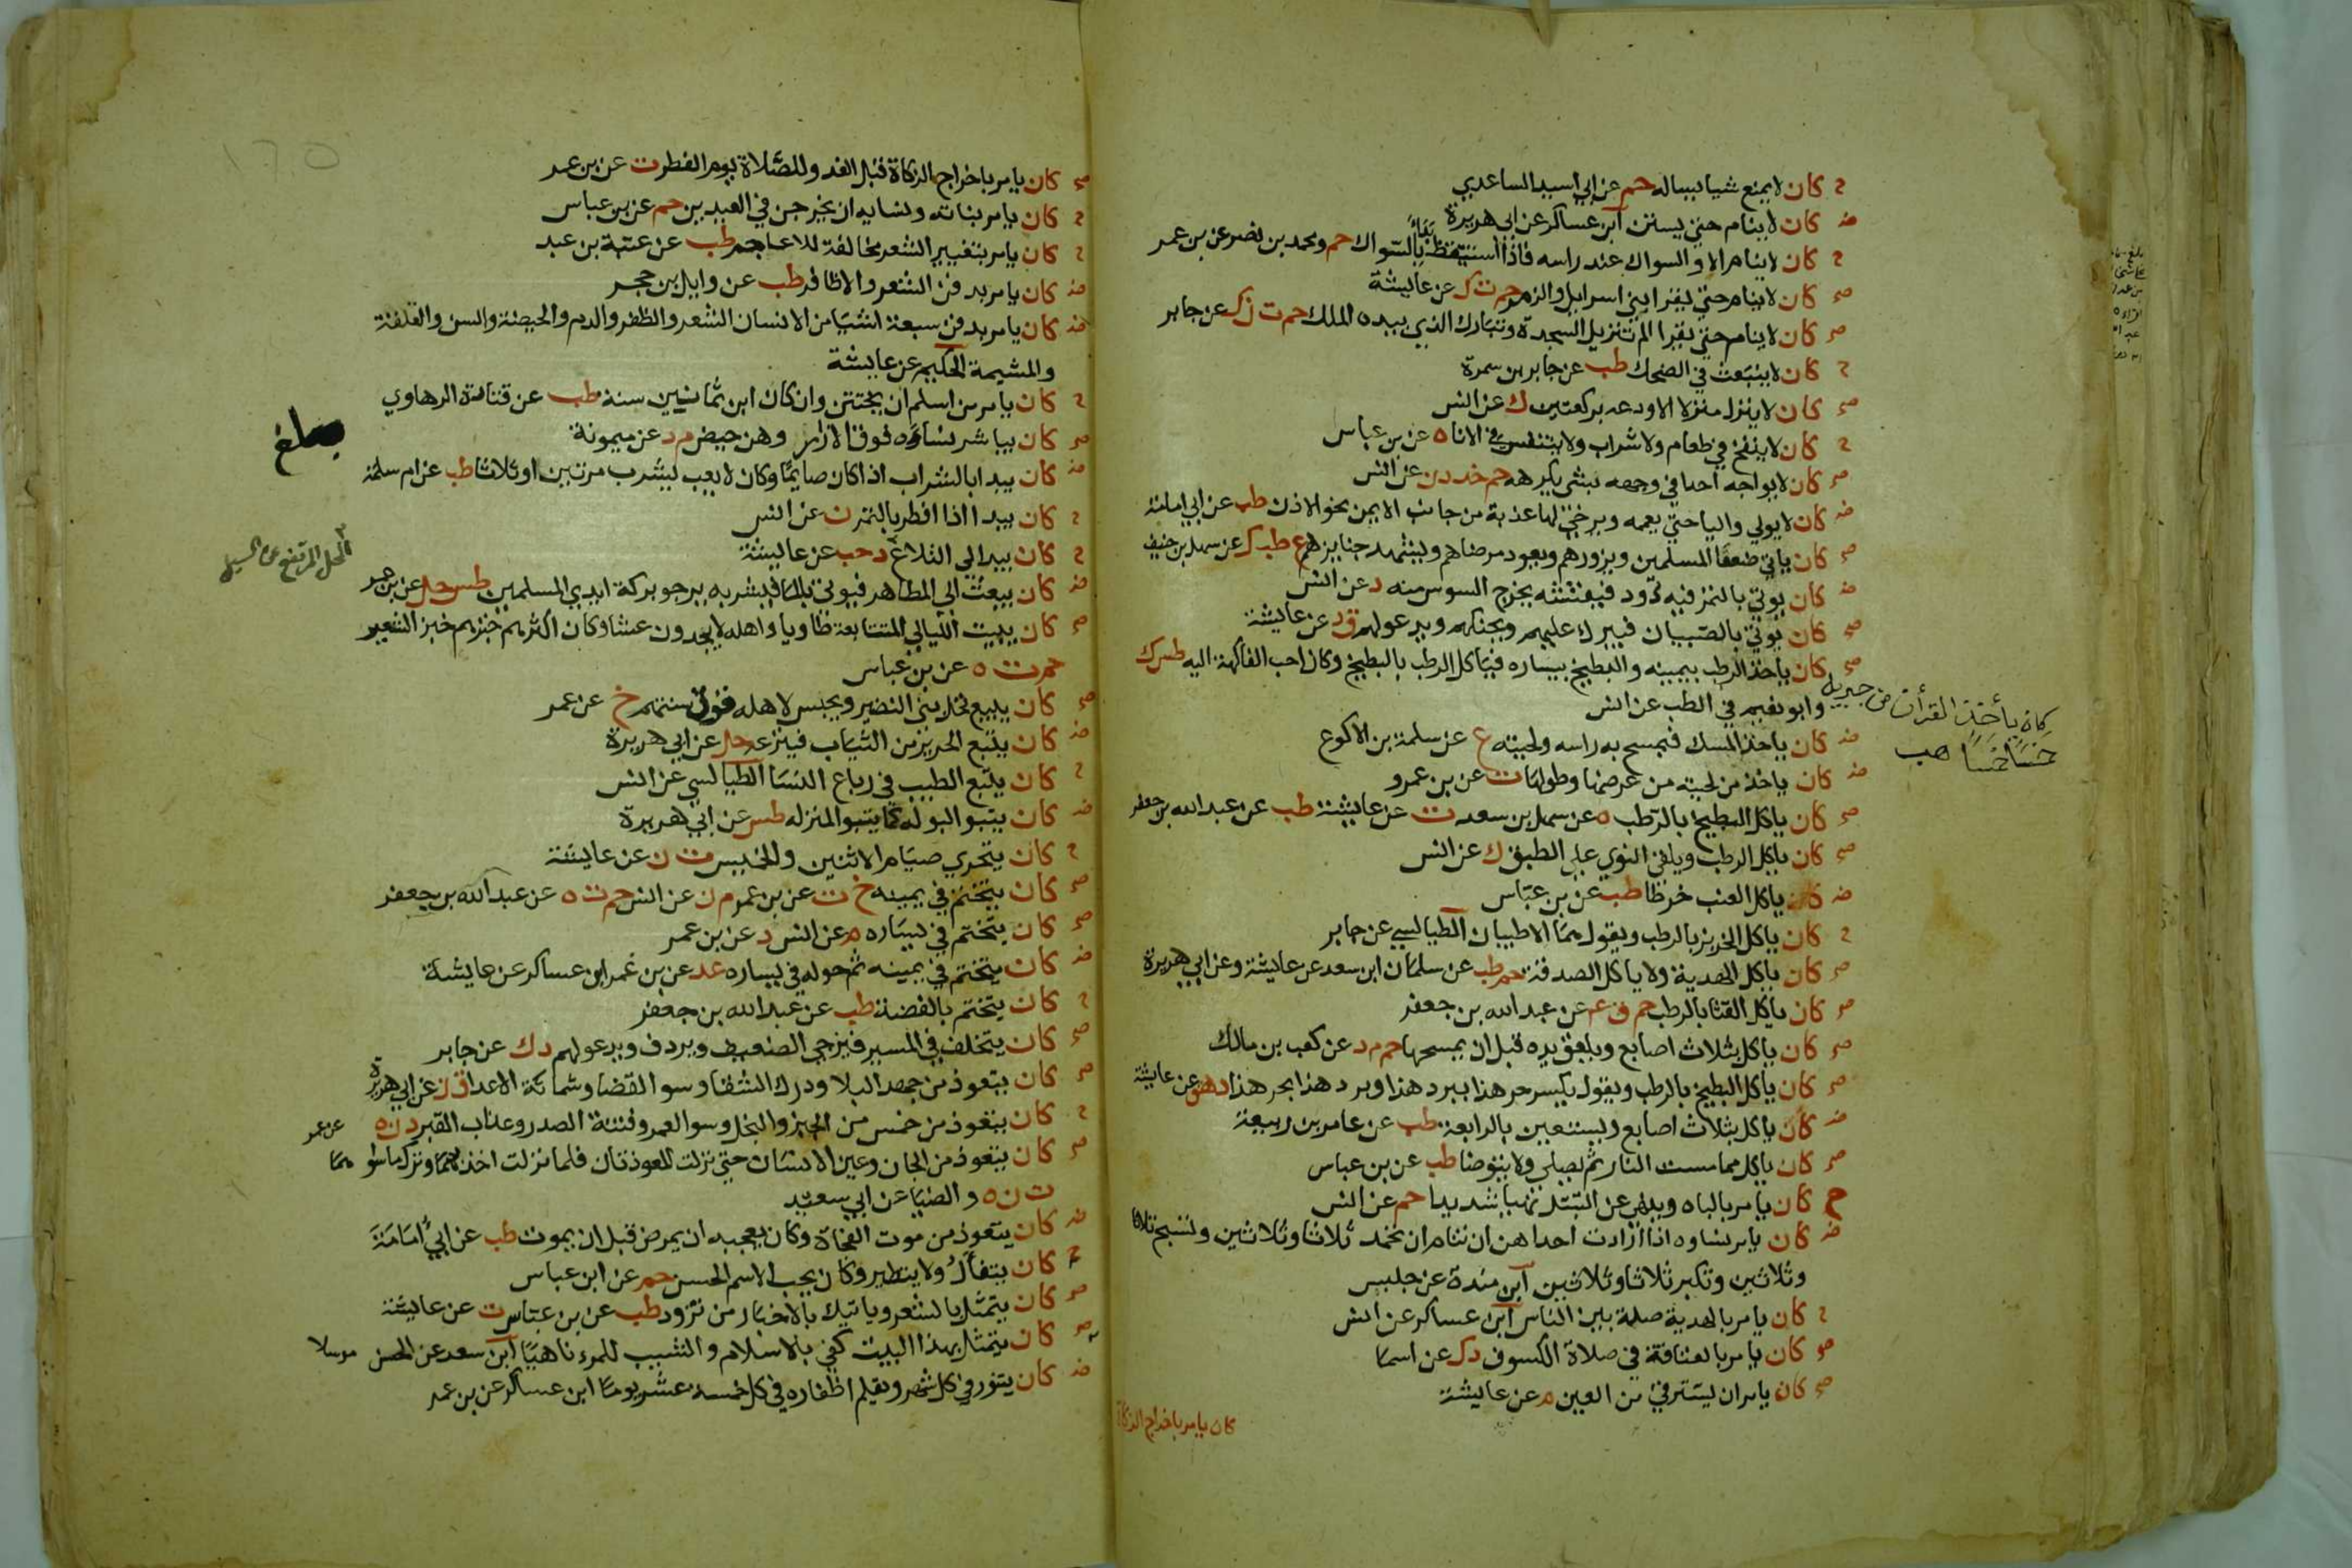 ح كان لا يمنع شيا يساله حم عن ابي اسيد الساعدي
ض كان لا ينام حتي يستن ابن عساكر عن ابي هريرة
ح كان لا ينام الا والسواك عند راسه فاذا استيقظ بدأ بالسواك حم ومحمد بن نصر عن بن عمر
صح كان لا ينام حتي يقرا بني اسرايل والزمر حم ت ك عن عايشة
صح كان لا ينام حتي يقرا الم تنزيل السجدة وتبارك الذي بيده الملك حم ت ن ك عن جابر
ح كان لا ينبعث في الضحك طب عن جابر بن سمرة
صح كان لا ينزل منزلا الا ودعه بركعتين ك عن انس
ح كان لا ينفخ في طعام ولا شراب ولا يتنفس في الاناء ه عن بن عباس
صح كان لا يواجه احدا في وجهه بشي يكرهه حم خد د ن عن انس
ض كان لا يولي واليا حتي يعممه ويرخي لها عذبة من جانب الايمن نحو الاذن طب عن ابي امامة
صح كان ياتي ضعفا المسلمين ويزورهم ويعود مرضاهم ويشهد جنايزهم ع طب ك عن سهل بن حنيف
ض كان يوتي بالتمر فيه دود فيفتشه يخرج السوس منه د عن انس
صح كان يوتي بالصبيان فيبرك عليهم ويحنكهم ويدعو لهم ق د عن عايشة
صح كان ياخذ الرطب بيمينه والبطيخ بيساره فياكل الرطب بالبطيخ وكان احب الفاكهة اليه طس ك
وابو نعيم في الطب عن انس
كان يأخذ القرأن من جبريل
خمسًا خمسًا هب
ض كان ياخذ المسك فيمسح به راسه ولحيته ع عن سلمة بن الاكوع
ض كان ياخذ من لحيته من عرضها وطولها ت عن بن عمرو
صح كان ياكل البطيخ بالرطب ه عن سهل بن سعد ت عن عايشة طب عن عبد الله بن جعفر
صح كان ياكل الرطب ويلقي النوي علي الطبق ك عن انس
ض كان ياكل العنب خرطا طب عن بن عباس
ح كان ياكل الخربز بالرطب ويقول هما الاطيبان الطيالسي عن جابر
صح كان ياكل الهدية ولا ياكل الصدقة حم طب عن سلمان ابن سعد عن عايشة وعن ابي هريرة
صح كان ياكل القثا بالرطب حم ق ع عن عبد الله بن جعفر
صح كان ياكل بثلاث اصابع ويلعق يده قبل ان يمسحها حم م د عن كعب بن مالك
صح كان ياكل البطيخ بالرطب ويقول يكسر حر هذا ببرد هذا وبرد هذا بحر هذا د هق عن عايشة
ض كان ياكل بثلاث اصابع ويستعين بالرابعة طب عن عامر بن ربيعة
صح كان ياكل مما مست النار ثم يصلي ولا يتوضا طب عن بن عباس
ح كان يامر بالباه وينهي عن التبتل نهيا شديدا حم عن انس
ض كان يامر نساوه اذا ارادت احداهن ان تنام ان تحمد ثلاثا وثلاثين وتسبح ثلاثا
وثلاثين وتكبر ثلاثا وثلاثين ابن مندة عن حلبس
ح كان يامر بالهدية صلة بين الناس ابن عساكر عن انس
صح كان يامر بالعتاقة في صلاة الكسوف د ك عن اسما
صح كان يامر ان يسترقي من العين م عن عايشة
كان يامر باخراج الزكاة
صح كان يامر باخراج الزكاة قبل الغدو للصلاة يوم الفطر ت عن بن عمر
ح كان يامر بناته ونسايه ان يخرجن في العيدين حم عن بن عباس
ح كان يامر بتغيير الشعر مخالفة للاعاجم طب عن عتبة بن عبد
ض كان يامر بدفن الشعر والاظافر طب عن وايل بن حجر
ض كان يامر بدفن سبعة اشيا من الانسان الشعر والظفر والدم والحيضة والسن والعلقة
والمشيمة الحكيم عن عايشة
ح كان يامر من اسلم ان يختتن وان كان ابن ثمانين سنة طب عن قتادة الرهاوي
صح كان يباشر نساوه فوق الازار وهن حيض م د عن ميمونة
بلغ
ض كان يبدا بالشراب اذا كان صايما وكان لا يعب يشرب مرتين او ثلاثا طب عن ام سلمة
ح كان يبدا اذا افطر بالتمر ن عن انس
ح كان يبدو الي التلاع د حب عن عايشة
المحل المرتفع عن السيل
ض كان يبعث الي المطاهر فيوتي بالما فيشربه يرجو بركة ايدي المسلمين طس حل عن بن عمر
صح كان يبيت الليالي المتتابعة طاويا واهله لا يجدون عشا وكان اكثر خبزهم خبز الشعير
حم ت ه عن بن عباس
صح كان يبيع نخل بني النضير ويحبس لاهله قوت سنتهم خ عن عمر
ض كان يتبع الحرير من الثياب فينزعه حل عن ابي هريرة
ح كان يتبع الطيب في رباع النسا الطيالسي عن انس
ض كان يتبوا لبوله كما يتبوا لمنزله طس عن ابي هريرة
ح كان يتحري صيام الاثنين والخميس ت ن عن عايشة
صح كان يتختم في يمينه خ ت عن بن عمر م ن عن انس حم ت ه عن عبد الله بن جعفر
صح كان يتختم في يساره م عن انس د عن بن عمر
ض كان يتختم في يمينه ثم حوله في يساره عد عن بن عمر ابن عساكر عن عايشة
ح كان يتختم بالفضة طب عن عبد الله بن جعفر
صح كان يتخلف في المسير فيزجي الضعيف ويردف ويدعو لهم د ك عن جابر
صح كان يتعوذ من جهد البلا ودرك الشقا وسو القضا وشماتة الاعدا ق ن عن ابي هريرة
ح كان يتعوذ من خمس من الجبن والبخل وسو العمر وفتنة الصدر وعذاب القبر د ن ه عن عمر
صح كان يتعوذ من الجان وعين الانسان حتي نزلت المعوذتان فلما نزلت اخذ بهما وترك ما سواهما
ت ن ه والضيا عن ابي سعيد
ض كان يتعوذ من موت الفجاة وكان يعجبه ان يمرض قبل ان يموت طب عن ابي أمامة
ح كان يتفأل ولا يتطير وكان يحب الاسم الحسن حم عن ابن عباس
صح كان يتمثل بالشعر وياتيك بالاخبار من لم تزود طب عن بن عباس ت عن عايشة
صح كان يتمثل بهذا البيت كفي بالاسلام والشيب للمرء ناهيا ابن سعد عن الحسن مرسلا
ض كان يتنور في كل شهر ويقلم اظفاره في كل خمسة عشر يوما ابن عساكر عن بن عمر